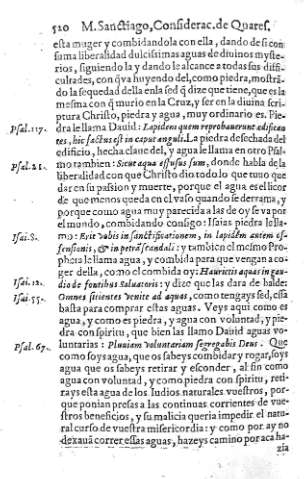 520 M. Sanctiago, Considerac. de Quares.
esta muger y combidandola con ella, dando de si con
suma liberalidad dulcissimas aguas de diuinos myste-
rios, siguiendo la y dando le alcance a todas sus diffi-
cultades, con q̃ va huyendo del, como piedra, mostrã-
do la sequedad della en la sed q̃ dize que tiene, que es la
mesma con q̃ murio en la Cruz, y ser en la diuina scri-
ptura Christo, piedra y agua, muy ordinario es. Pie-
Psal. 117. dra le llama Dauid: Lapidem quem reprobauerunt edifican
tes, hic factus est in caput anguli. La piedra desechada del
edificio, hecha clane del, y agua le llama en otro Psal-
Psal. 21. mo tambien: Sicut aqua effusus sum, donde habla de la
liberalidad con que Christo dio todo lo que tuuo que
dar en su passion y muerte, porque el agua es el licor
de que menos queda en el vaso quando se derrama, y
porque como agua muy parecida a las de oy se va por
el mundo, combidando consigo: Isaias piedra le lla-
Isai. 8. mo: Erit vobis in sanctificationem, in lapidem autem of-
fensionis, & in petrã scandali: y tambien el mesmo Pro-
pheta le llama agua, y combida para que vengan a co-
ger della, como el combida oy: Haurietis aquas in gau-
Isai. 12. dio de fontibus Saluatoris: y dize que las dara de balde:
Isai. 55. Omnes sitientes venite ad aquas, como tengays sed, essa
basta para comprar estas aguas. Veys aqui como es
agua, y como es piedra, y agua con voluntad, y pie-
dra con spiritu, que bien las llamo Dauid aguas vo-
Psal. 67. luntarias: Pluuiam voluntariam segregabis Deus. Que
como soys agua, que os sabeys combidar y rogar, soys
agua que os sabeys retirar y esconder, al fin como
agua con voluntad, y como piedra con spiritu, reti-
rays esta agua de los Iudios naturales vuestros, por-
que ponian presas a las continuas corrientes de vue-
stros beneficios, y su malicia queria impedir el natu-
ral curso de vuestra misericordia: y como por ay no
dexaua correr essas aguas, hazeys camino por aca ha-
zia